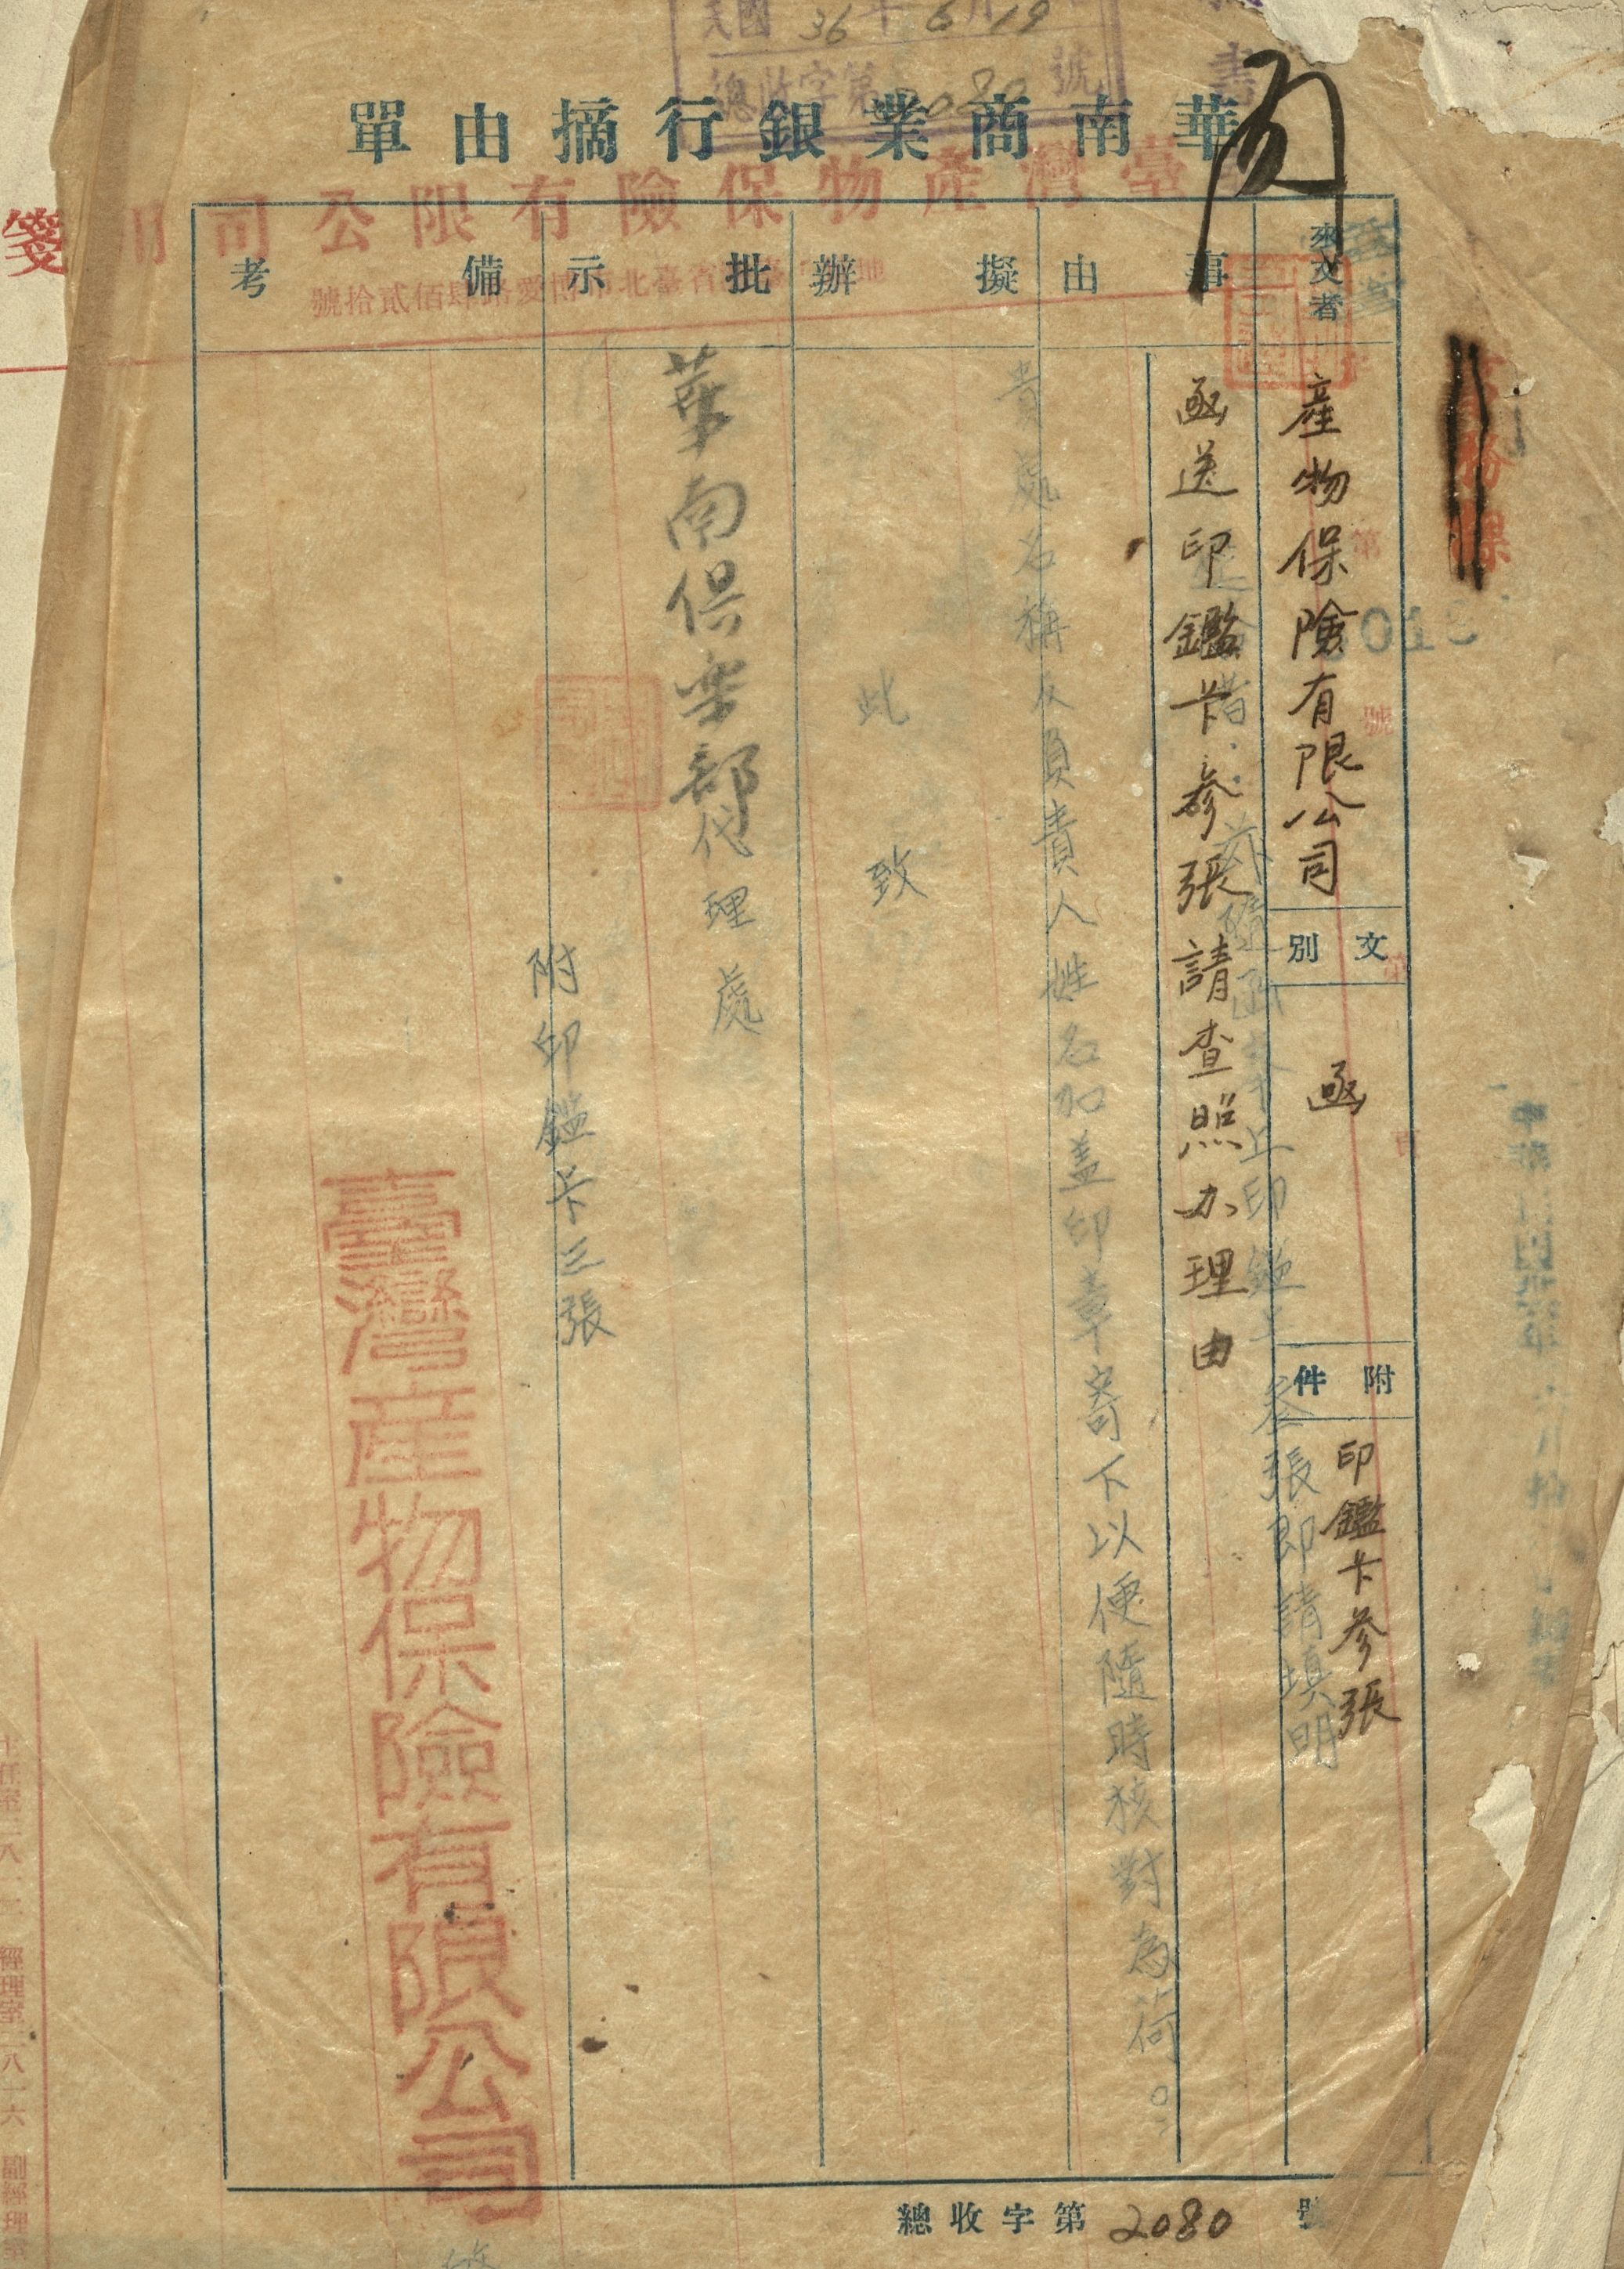 民國 36 年 6 月 19
總收字第 2080 號
華南商業銀行摘由單
臺灣產物保險有限公司
箋
來文者
產物保險有限公司
文別
函
附件
印鑑卡參張
事由
函送印鑑卡參張請查照办理由
擬辦
批示
備考
參張即請填明
貴處名稱及負責人姓名加盖印章寄下以便隨時核對為荷。
此致
華南保安部代理處
附印鑑卡三張
臺灣產物保險有限公司
總收字第 2080 號
經理室二八一六 副經理室